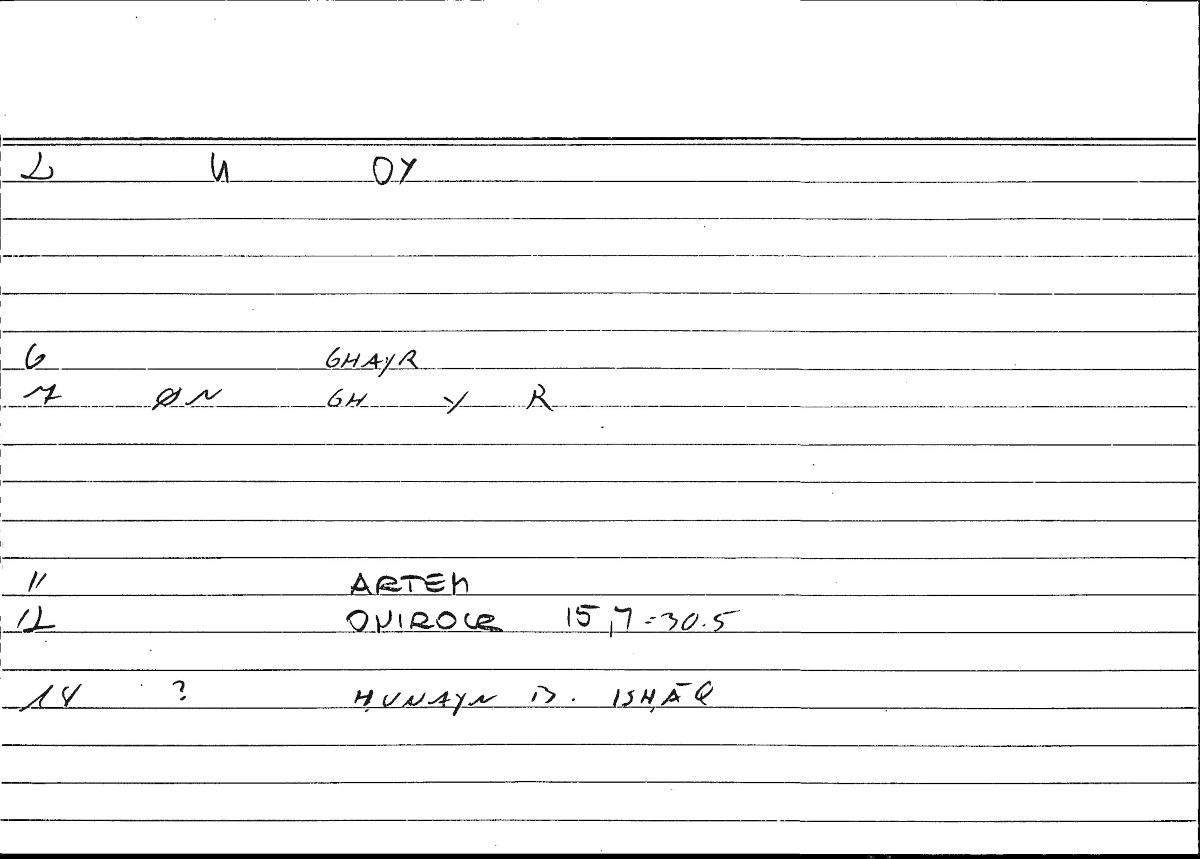 2 U OY
6 GHAYR
7 ØN GH Y R
11 ARTEM
12 ONIROCR 15,7-30.5
14 ? ḤUNAYN B. ISḤĀQ